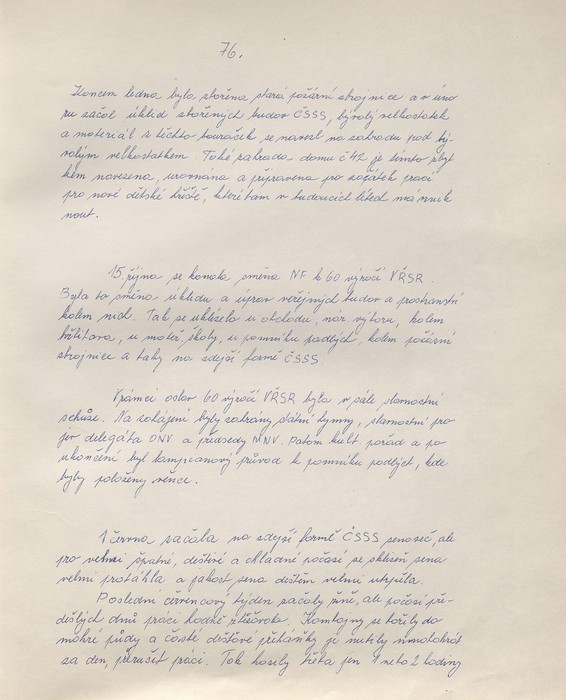 76.
Koncem ledna byla zbořena stará požární zbrojnice a v úno
ru začal úklid zbořených budov ČSSS, bývalý velkostatek
a materiál z těchto bouraček se navezl na zahradu pod bý-
valým velkostatkem. Také zahrada domu č 42 je tímto zbyt
kem navezena, urovnána a připravena pro začátek prací
pro nové dětské hřiště, které tam v budoucích létech má vznik
nout.
15. října se konala směna NF k 60 výročí VŘSR.
Byla to směna úklidu a úprav veřejných budov a prostranství
kolem nich. Tak se uklízelo u obchodu, nár výboru, kolem
hřbitova, u mateř školy, u pomníku padlých, kolem požární
zbrojnice a taky na zdejší farmě ČSSS.
V rámci oslav 60 výročí VŘSR byla v sále slavnostní
schůze. Na zahájení byly zahrány státní hymny, slavnostní pro
jev delegáta ONV a předsedy MNV. Potom kult. pořad a po
ukončení byl lampionový průvod k pomníku padlých, kde
byly položeny věnce.
1 června začala na zdejší farmě ČSSS senoseč, ale
pro velmi špatné, deštivé a chladné počasí se sklizeň sena
velmi protáhla a jakost sena deštěm velmi utrpěla.
Poslední červencový týden začaly žně, ale počasí pře-
dešlých dnů práci hodně ztěžovalo. Kombajny se bořily do
mokré půdy a časté dešťové přeháňky je nutily mnohokrát
za den, přerušit práci. Tak kosily třeba jen 1 nebo 2 hodiny